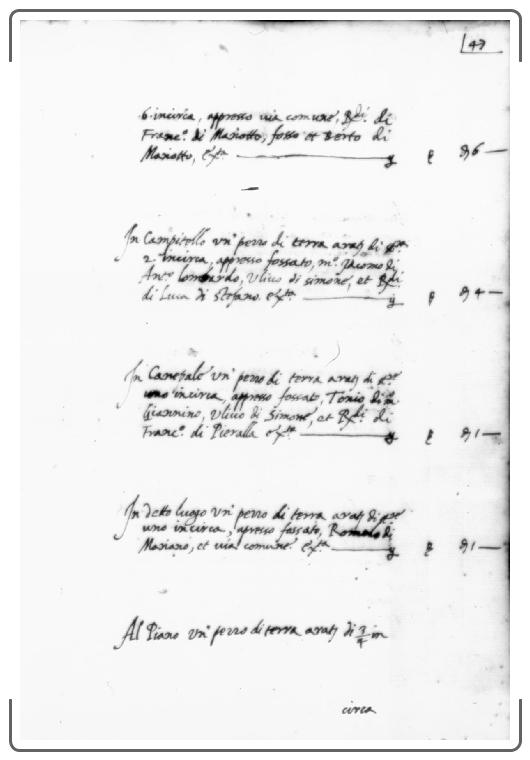 47
6. incirca, appresso via comune, Rdi. di
Franc.o di Mariotto, fosso et Berto di
Mariotto, &
6 —
In Campitello un' pezzo di terra arat. di
2 incirca, appresso fossato, m.o Jacomo di
Ant.o lombardo, Ulivo di simone, et Rdi
di Luca di Stefano.
4 —
In Canepale un' pezzo di terra arat. di
uno incirca, appresso fossato, Tonio di
Giannino, Ulivo di Simone, et Rdi. di
Franc.o di Pieralla
1 —
In detto luogo un' pezzo di terra arat. di
uno incirca, apresso fossato, Romolo di
Mariano, et via comune.
1 —
Al Piano un' pezzo di terra arat. di 3/4 in
circa